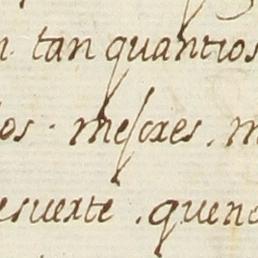 tan quantios
os . mesores . m
esuerte . quen